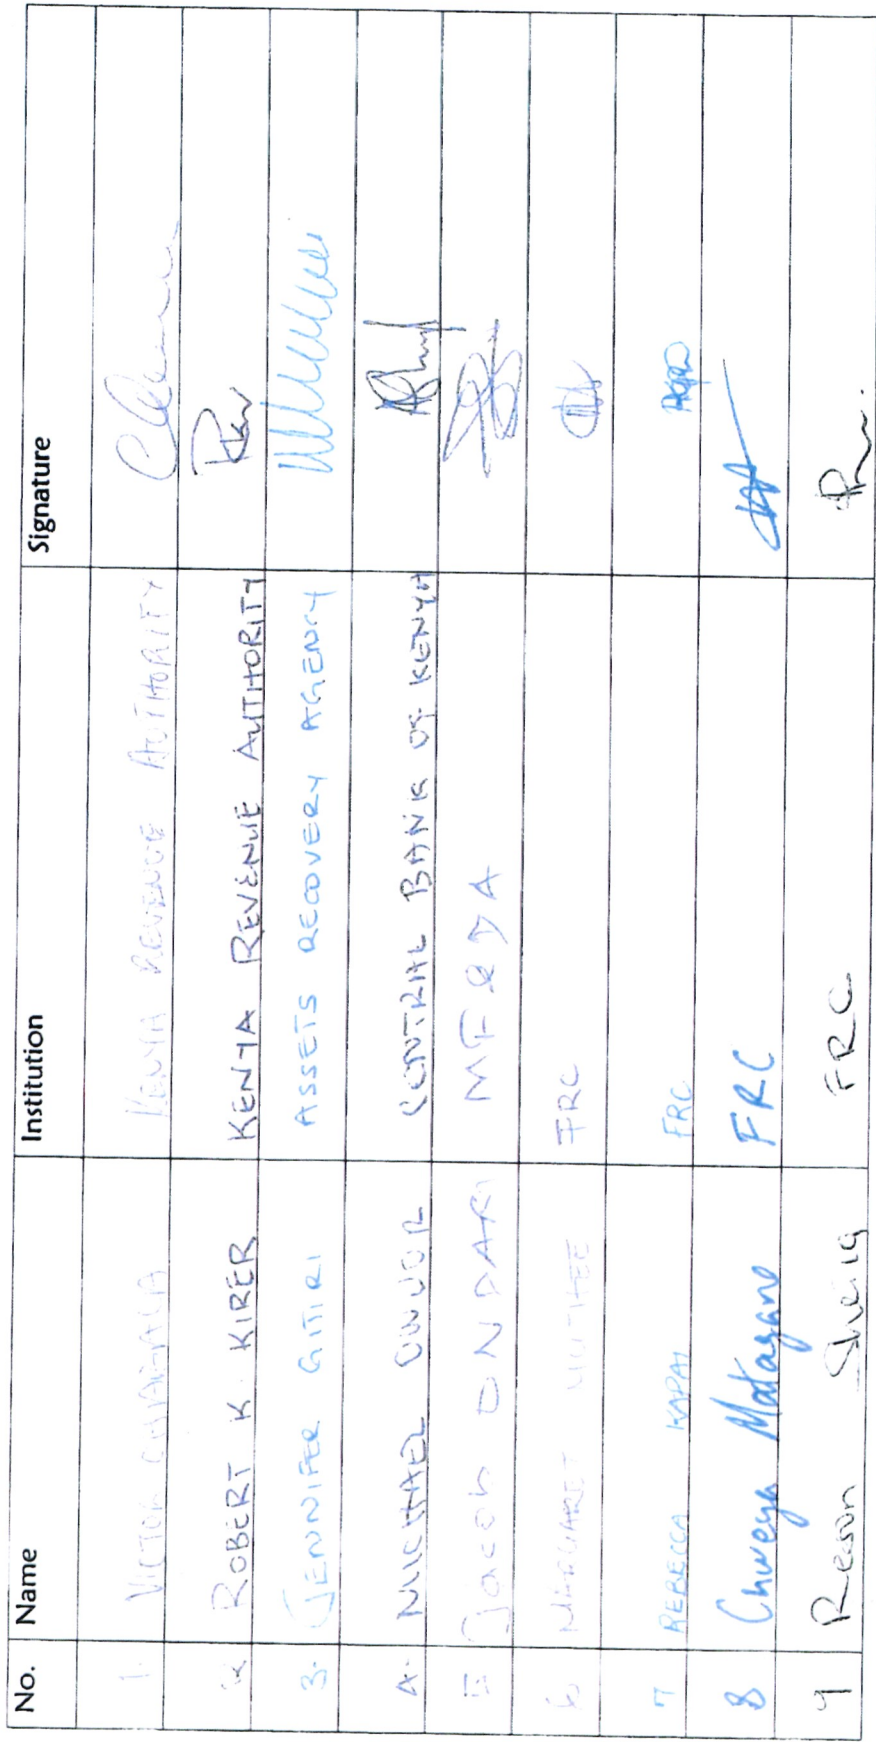 No. Name Institution Signature
1. VICTOR KENYA REVENUE AUTHORITY
2 ROBERT K. KIRER KENYA REVENUE AUTHORITY
3. JENNIFER GITIRI ASSETS RECOVERY AGENCY
4. MICHAEL OWUOR CENTRAL BANK OF KENYA
5 Jacob ONDARI
6 MARGARET MUTHEE FRC
7 REBECCA KAPAI FRC
8 Chweya Matagaro FRC
9 FRC